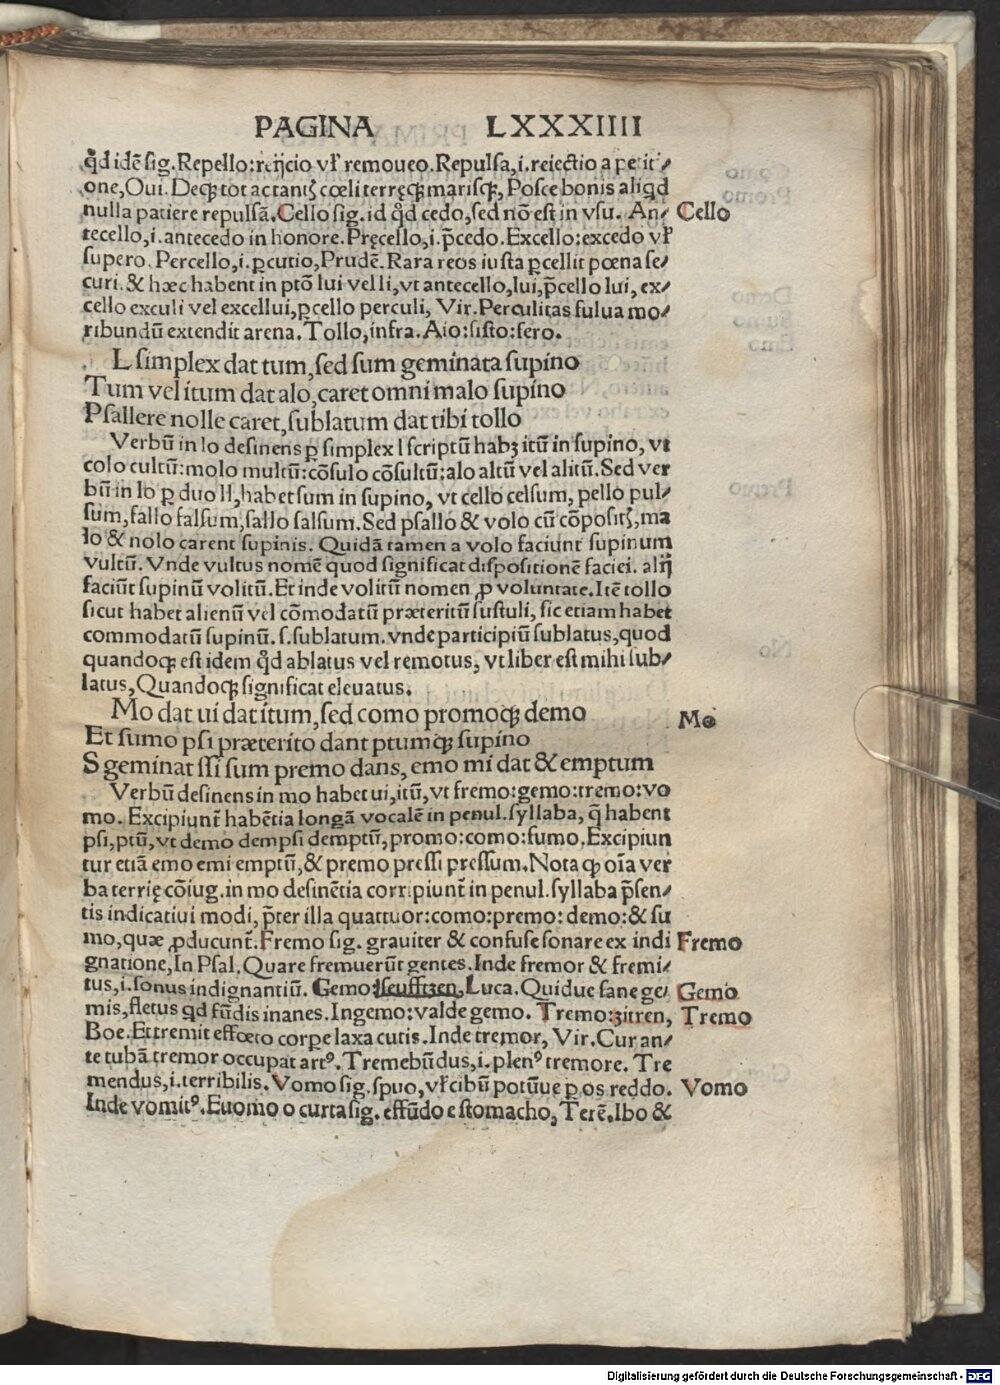 PAGINA LXXXIIII
qd̕ idē sig. Repello: reijcio vł remoueo. Repulsa, i. reiectio a petiti⸗
one, Oui. Deqꝫ tot ac tantꝭ cœli terręqꝫ marisqꝫ, Posce bonis aliqd
nulla patiere repulsā. Cello sig. id qd̕ cedo, sed nō est in vsu. An⸗ Cello
tecello, i. antecedo in honore. Pręcello, i. p̄cedo. Excello: excedo vł
supero. Percello, i. ꝑcutio, Prudē. Rara reos iusta ꝑcellit pœna se⸗
curi. & hæc habent in ptō lui vel li, vt antecello, lui, p̄cello lui, ex⸗
cello exculi vel excellui, ꝑcello perculi, Vir. Perculitas fulua mo⸗
ribundū extendit arena. Tollo, infra. Aio: sisto: fero.
L simplex dat tum, sed sum geminata supino
Tum vel itum dat alo, caret omni malo supino
Psallere nolle caret, sublatum dat tibi tollo
Verbū in lo desinens ꝑ simplex l scriptū habꝫ itū in supino, vt
colo cultū: molo multū: cōsulo cōsultū: alo altū vel alitū. Sed ver
bū in lo ꝑ duo ll, habet sum in supino, vt cello celsum, pello pul⸗
sum, fallo falsum, sallo salsum. Sed psallo & volo cū cōpositꝭ, ma
lo & nolo carent supinis. Quidā tamen a volo faciunt supinum
vultū. Vnde vultus nomē quod significat dispositionē faciei. alij
faciūt supinū volitū. Et inde volitū nomen ꝓ voluntate. Itē tollo
sicut habet alienū vel cōmodatū præteritū sustuli, sic etiam habet
commodatū supinū. s. sublatum. vnde participiū sublatus, quod
quandoqꝫ est idem qd̕ ablatus vel remotus, vt liber est mihi sub⸗
latus, Quandoqꝫ significat eleuatus.
Mo dat ui dat itum, sed como promoqꝫ demo Mo
Et sumo psi præterito dant ptumqꝫ supino
S geminat ssi sum premo dans, emo mi dat & emptum
Verbū desinens in mo habet ui, itū, vt fremo: gemo: tremo: vo
mo. Excipiunt̕ habētia longā vocalē in penul. syllaba, q̄ habent
psi, ptū, vt demo dempsi demptū, promo: como: sumo. Excipiun
tur etiā emo emi emptū, & premo pressi pressum. Nota ꝙ oīa ver
ba terrię cōiug. in mo desinētia corripiunt̕ in penul. syllaba p̄sen⸗
tis indicatiui modi, p̄ter illa quattuor: como: premo: demo: & su
mo, quæ ꝓducunt̕. Fremo sig. grauiter & confuse sonare ex indi Fremo
gnatione, In Psal. Quare fremuerūt gentes. Inde fremor & fremi⸗
tus, i. sonus indignantiū. Gemo: seufftzen, Luca. Quidue sane ge⸗ Gemo
mis, fletus qd fūdis inanes. Ingemo: valde gemo. Tremo: zitren, Tremo
Boe. Et tremit effœto corpe laxa cutis. Inde tremor, Vir. Cur an⸗
te tubā tremor occupat artꝰ. Tremebūdus, i. plenꝰ tremore. Tre
mendus, i. terribilis. Vomo sig. spuo, vł cibū potūue ꝑ os reddo. Vomo
Inde vomitꝰ. Euomo o curta sig. effūdo e stomacho, Terē. Ibo &
Digitalisierung gefördert durch die Deutsche Forschungsgemeinschaft - DFG